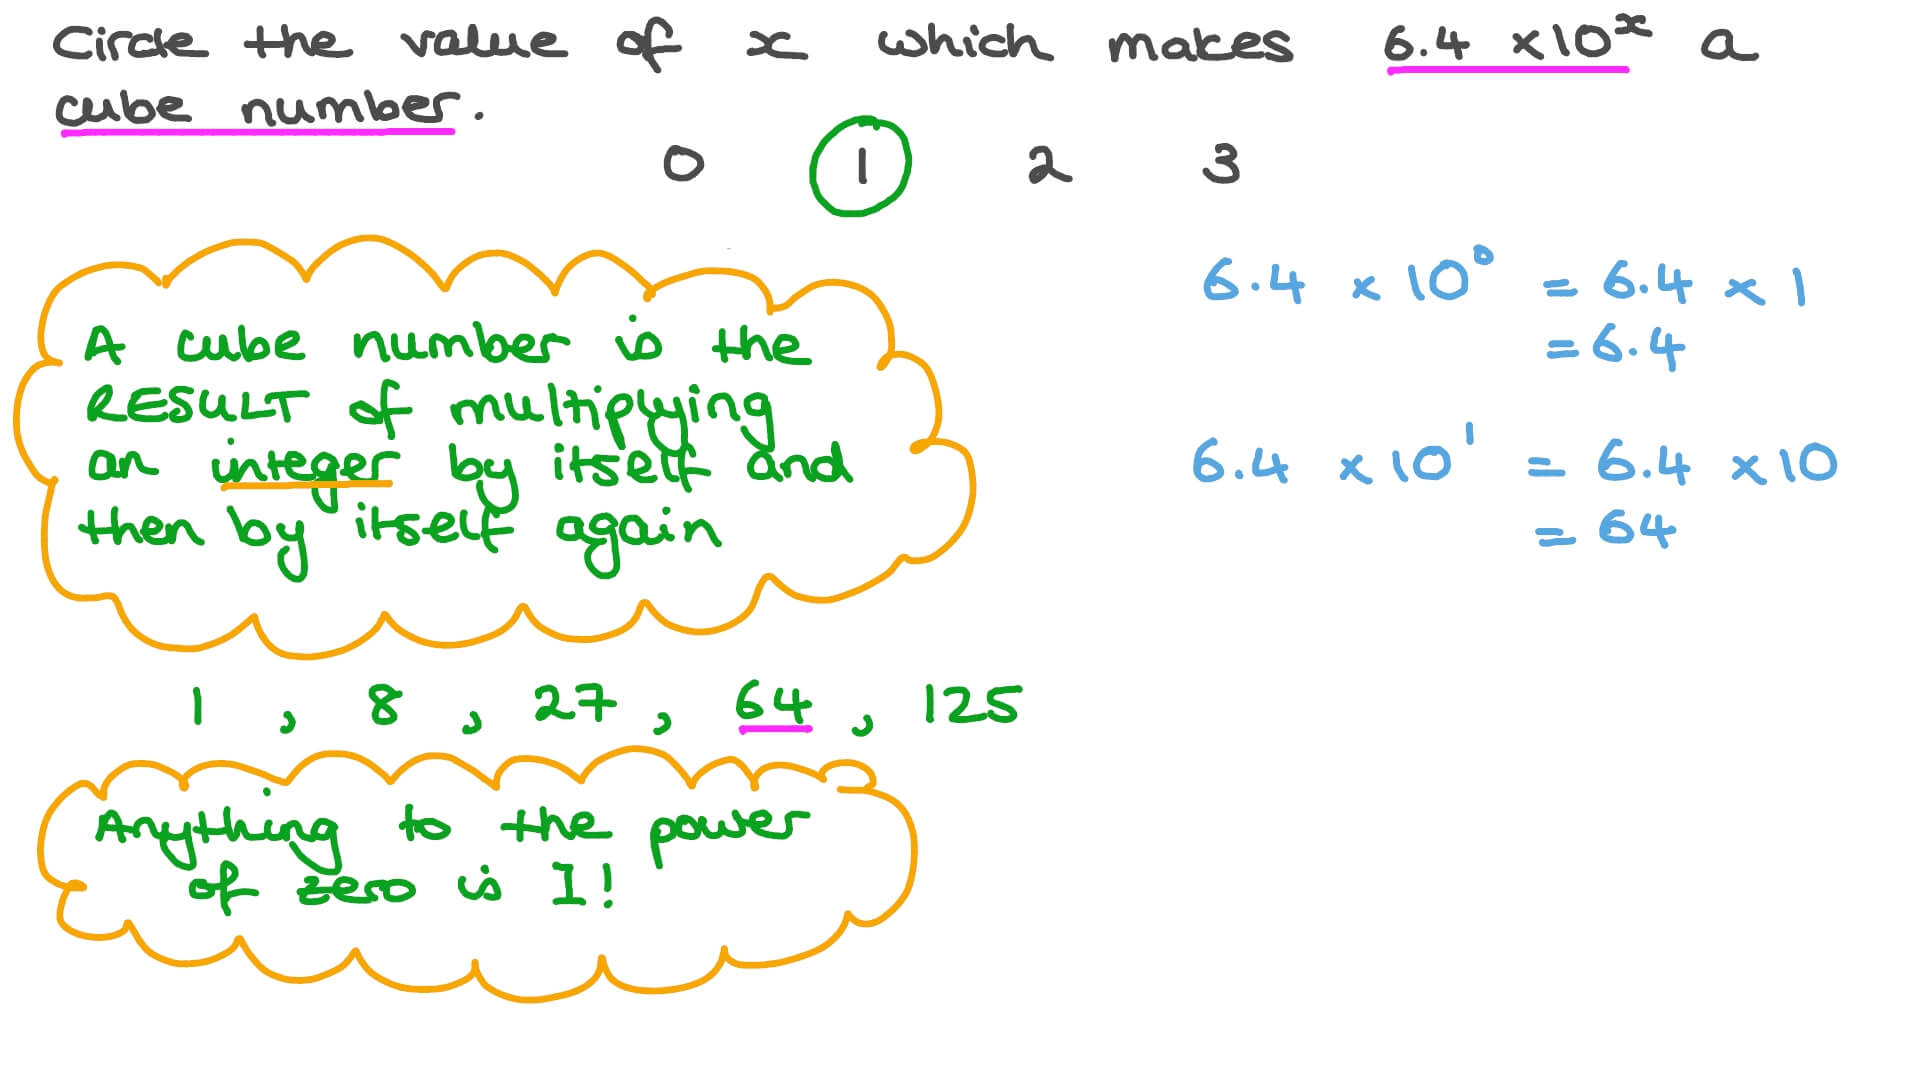 Circle the value of x which makes 6.4 × 10ˣ a
cube number.
0 1 2 3
A cube number is the
RESULT of multiplying
an integer by itself and
then by itself again
1 , 8 , 27 , 64 , 125
Anything to the power
of zero is 1!
6.4 × 10⁰ = 6.4 × 1
= 6.4
6.4 × 10¹ = 6.4 × 10
= 64